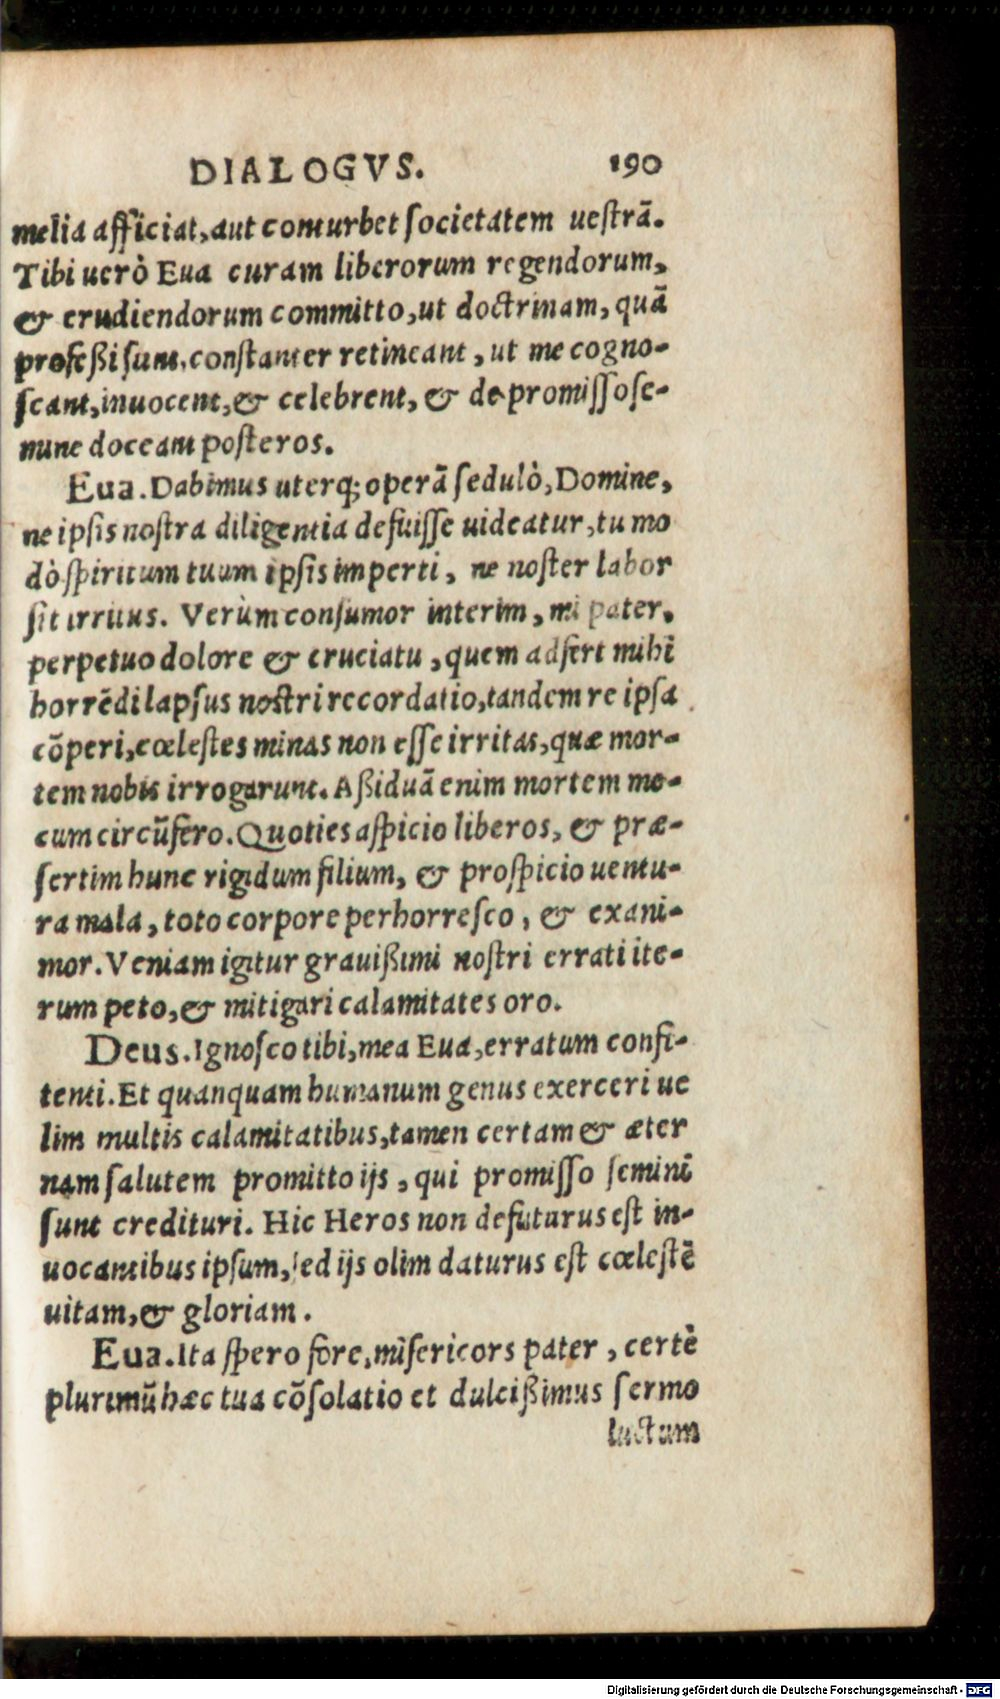 DIALOGVS. 190
melia afficiat, aut conturbet ſocietatem ueſtrā.
Tibi uerò Eua curam liberorum regendorum,
& erudiendorum committo, ut doctrinam, quā
profeßi ſunt, conſtanter retineant, ut me cogno-
ſcant, inuocent, & celebrent, & de promiſſo ſe-
mine doceant poſteros.
Eua. Dabimus uterq; operā ſedulò, Domine,
ne ipſis noſtra diligentia defuiſſe uideatur, tu mo
dò ſpiritum tuum ipſis imperti, ne noſter labor
ſit irritus. Verùm conſumor interim, mi pater,
perpetuo dolore & cruciatu, quem adfert mihi
horrēdi lapſus noſtri recordatio, tandem re ipſa
cōperi, cœleſtes minas non eſſe irritas, quæ mor-
tem nobis irrogarunt. Aßiduā enim mortem me-
cum circūfero. Quoties aſpicio liberos, & præ-
ſertim hunc rigidum filium, & proſpicio uentu-
ra mala, toto corpore perhorreſco, & exani-
mor. Veniam igitur grauißimi noſtri errati ite-
rum peto, & mitigari calamitates oro.
Deus. Ignoſco tibi, mea Eua, erratum confi-
tenti. Et quanquam humanum genus exerceri ue
lim multis calamitatibus, tamen certam & æter
nam ſalutem promitto ijs, qui promiſſo ſemini
ſunt credituri. Hic Heros non defuturus eſt in-
uocantibus ipſum, ſed ijs olim daturus eſt cœleſtē
uitam, & gloriam.
Eua. Ita ſpero fore, miſericors pater, certè
plurimū hæc tua cōſolatio et dulcißimus ſermo
luctum
Digitalisierung gefördert durch die Deutsche Forschungsgemeinschaft - DFG